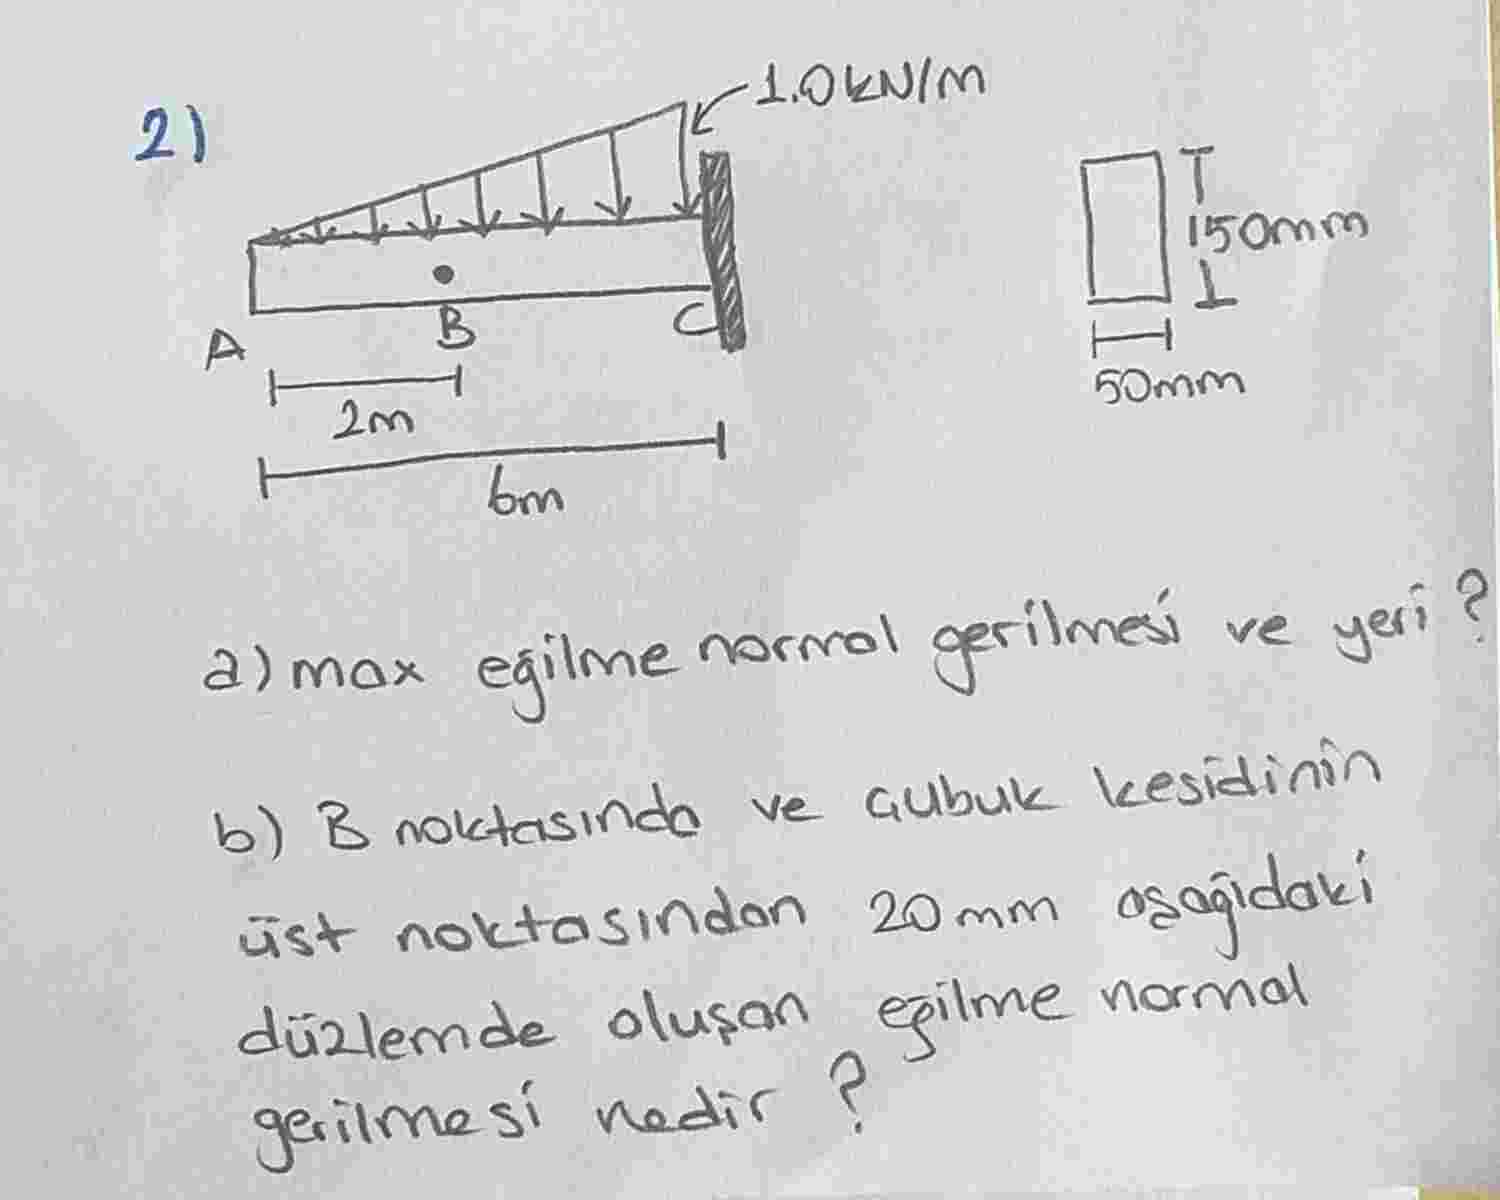 2)
1.0 kN/m
150mm
50mm
A
B
C
2m
6m
a) max eğilme normal gerilmesi ve yeri?
b) B noktasında ve çubuk kesidinin
üst noktasından 20mm aşağıdaki
düzlemde oluşan eğilme normal
gerilmesi nedir?